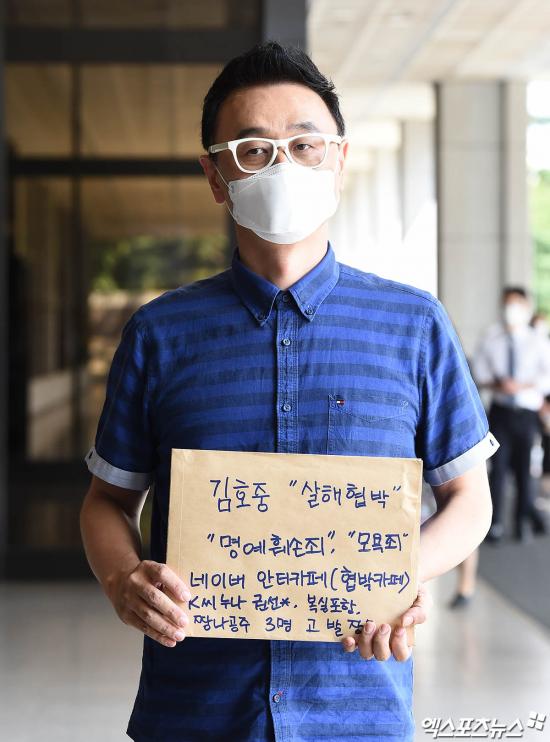 김호중 "살해협박"
"명예훼손죄", "모욕죄"
네이버 안터카페(협박카페)
K씨누나 권선*. 복실포함.
짱나공주 3명 고발장
엑스포츠뉴스